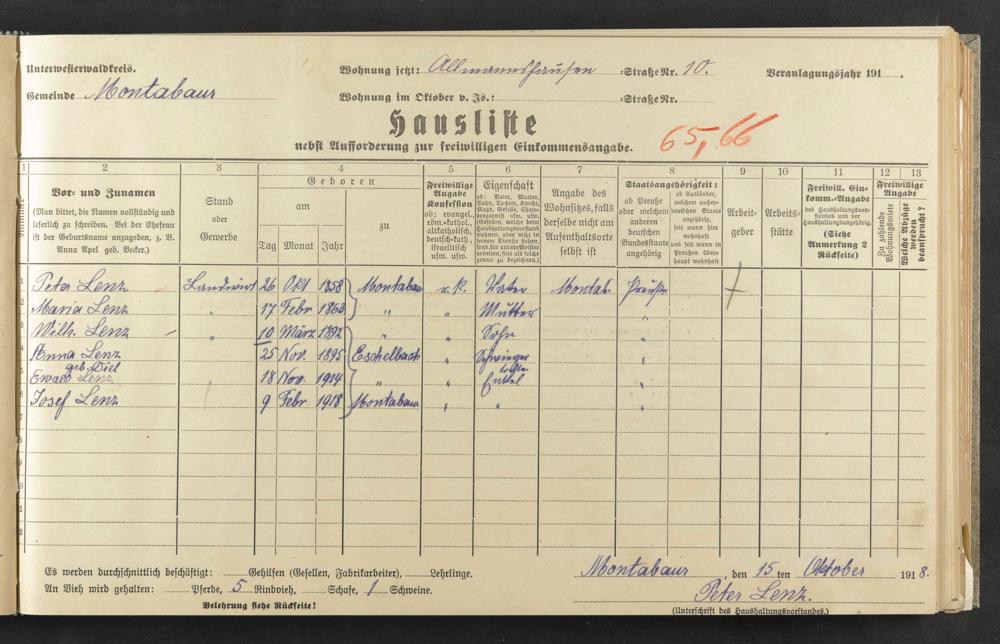 Unterwesterwaldkreis.
Wohnung jetzt: Allmannshausen -Straße Nr. 10.
Veranlagungsjahr 191 .
Gemeinde Montabaur
Wohnung im Oktober v. Js.: -Straße Nr.
Hausliste
65, 66
nebst Aufforderung zur freiwilligen Einkommensangabe.
1 2 3 4 5 6 7 8 9 10 11 12 13
Vor- und Zunamen
(Man bittet, die Namen vollständig und
leserlich zu schreiben. Bei der Ehefrau
ist der Geburtsname anzugeben, z. B.
Anna Apel geb. Becker.)
Stand
oder
Gewerbe
Geboren
am
Tag Monat Jahr
zu
Freiwillige
Angabe
Konfession
(ob: evangel.,
röm.-kathol.,
altkatholisch,
deutsch-kath.,
israelitisch
usw. usw.
Eigenschaft
Angabe des
Wohnsitzes, falls
derselbe nicht am
Aufenthaltsorte
selbst ist
Staatsangehörigkeit:
ob Preuße
oder welchem
anderen
deutschen
Bundesstaate
angehörig
ob Ausländer,
welchem außer-
deutschen Staate
angehörig,
seit wann hier
wohnhaft
und seit wann in
Preußen über-
haupt wohnhaft
Arbeit-
geber
Arbeits-
stätte
Freiwill. Ein-
komm.-Angabe
des Haushaltungsvor-
standes und der
Haushaltungsangehörig.
(Siehe
Anmerkung 2
Rückseite)
Freiwillige
Angabe
Zu zahlende
Wohnungsmiete
Welche Abzüge
werden
beansprucht?
Peter Lenz Landwirt 26 Okt 1858 Montabau r. k. Vater Montab. Preuße
Maria Lenz " 17 Febr 1863 " " Mutter "
Wilh. Lenz " 10 März 1892 " " Sohn "
Anna Lenz 25 Nov. 1895 Eschelbach " Schwieger "
geb. Diel tochter
Ewald Lenz " 18 Nov. 1914 " " Enkel "
Josef Lenz 9 Febr 1918 Montabaur " " "
Es werden durchschnittlich beschäftigt: Gehilfen (Gesellen, Fabrikarbeiter), Lehrlinge.
Montabaur, den 15 ten Oktober 1918.
An Vieh wird gehalten: Pferde, 5 Rindvieh, Schafe, 1 Schweine.
Peter Lenz.
Belehrung siehe Rückseite!
(Unterschrift des Haushaltungsvorstandes.)